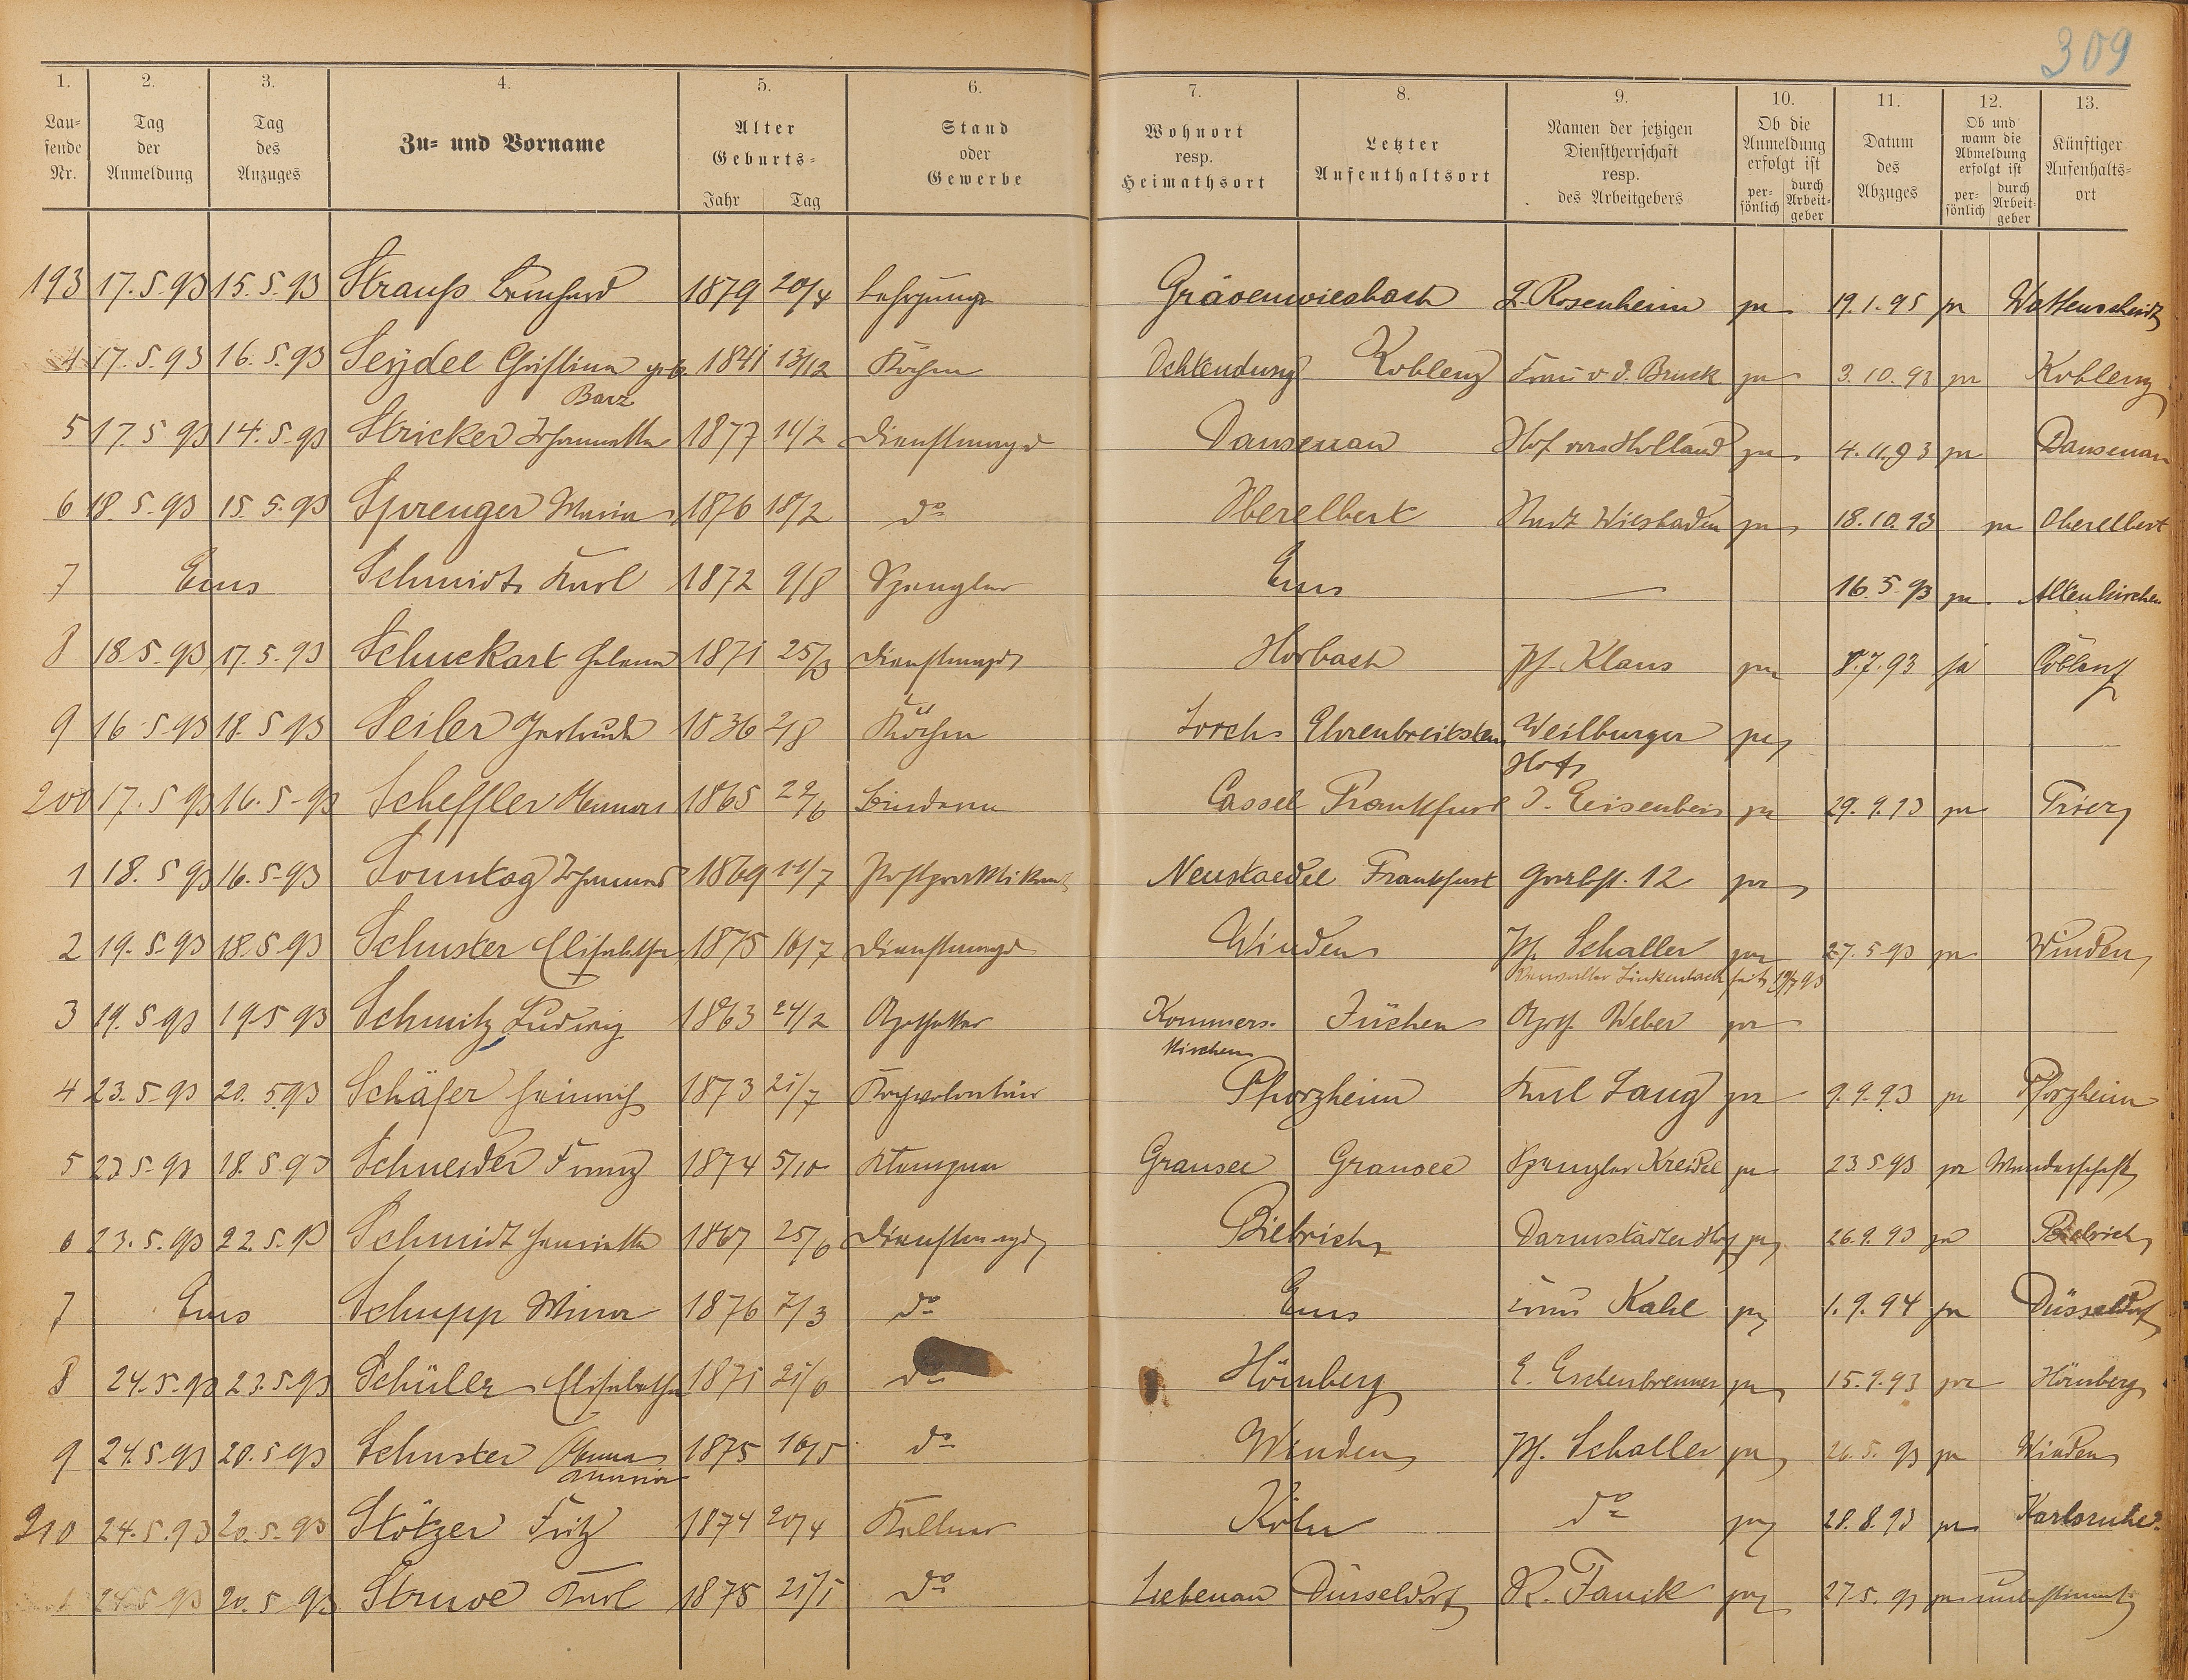 309
1. 2. 3. 4. 5. 6. 7. 8. 9. 10. 11. 12. 13.
Lau-
sende
Nr.
Tag
der
Anmeldung
Tag
des
Anzuges
Zu- und Vorname
Alter
Geburts-
Jahr Tag
Stand
oder
Gewerbe
Wohnort
resp.
Heimathsort
Letzter
Aufenthaltsort
Namen der jetzigen
Dienstherrschaft
resp.
des Arbeitgebers
Ob die
Anmeldung
erfolgt ist
per-
sönlich
durch
Arbeit-
geber
Datum
des
Abzuges
Ob und
wann die
Abmeldung
erfolgt ist
per-
sönlich
durch
Arbeit-
geber
Künftiger
Aufenhalts-
ort
193 17.5.93 15.5.93 Strauß Bernhard 1879 20/4 Lehrjunge Grävenwiesbach L. Rosenheim ja 19.1.95 ja Wattenscheid
4 17.5.93 16.5.93 Seydel Christina geb 1841 13/12 Köchin Ochtendung Koblenz Frau v. d. Bruck ja 3.10.93 ja Koblenz
Barz
5 17.5.93 14.5.93 Stricker Johannetta 1877 14/2 Dienstmagd Dausenau Hof von Holland ja 4.11.93 ja Dausenau
6 18.5.93 15.5.93 Sprenger Maria 1876 18/2 do Oberelbert Stadt Wiesbaden ja 18.10.93 ja Oberelbert
7 Ems Schmidt Karl 1872 9/8 Spengler Ems — 16.5.93 ja Altenkirchen
8 18.5.93 17.5.93 Schuckart Helena 1871 25/3 Dienstmagd Horbach Ph. Klaus ja 8.7.93 ja Coblenz
9 16.5.93 18.5.93 Seiler Gertrude 1836 2/8 Köchin Lorch Ehrenbreitstein Weilburger ja
Hof
200 17.5.93 16.5.93 Scheffler 1865 22/6 Cassel Frankfurt J. Eisenbeis ja 29.9.93 ja Trier
1 18.5.93 16.5.93 Sonntag Johannes 1869 11/7 Postpraktikant Neustaedel Frankfurt Grabst. 12 ja
2 19.5.93 18.5.93 Schuster Elisabetha 1875 16/7 Dienstmagd Winden Ph. Schaller ja 27.5.93 ja Winden
Linkenbach seit 19/7 93
3 19.5.93 19.5.93 Schmitz Ludwig 1863 24/2 Apotheker Kommers- Jüchen Apoth. Weber ja
kirchen
4 23.5.93 20.5.93 Schäfer Heinrich 1873 21/7 Kochvolontär Pforzheim Karl Lang ja 9.9.93 ja Pforzheim
5 23.5.93 18.5.93 Schneider Franz 1874 5/10 Klempner Gransee Gransee Spengler Kreidel ja 23.5.93 ja Wanderschaft
6 23.5.93 22.5.93 Schmidt Henriette 1867 25/6 Dienstmagd Biebrich Darmstädter Hof ja 26.9.93 ja Biebrich
7 Ems Schupp Mina 1876 7/3 do Ems Kahl ja 1.9.94 ja Düsseldorf
8 24.5.93 23.5.93 Schüler Elisabetha 1871 21/6 do Hömberg E. Eschenbrenner ja 15.9.93 ja Hömberg
9 24.5.93 20.5.93 Schuster Anna 1875 16/5 do Winden Ph. Schaller ja 26.5.93 ja Winden
210 24.5.93 20.5.93 Stötzer Fritz 1874 20/4 Kellner Köln do ja 28.8.93 ja Karlsruhe
1 24.5.93 20.5.93 Struve Karl 1875 21/1 do Liebenau Düsseldorf R. Fanik ja 27.5.93 ja unbestimmt